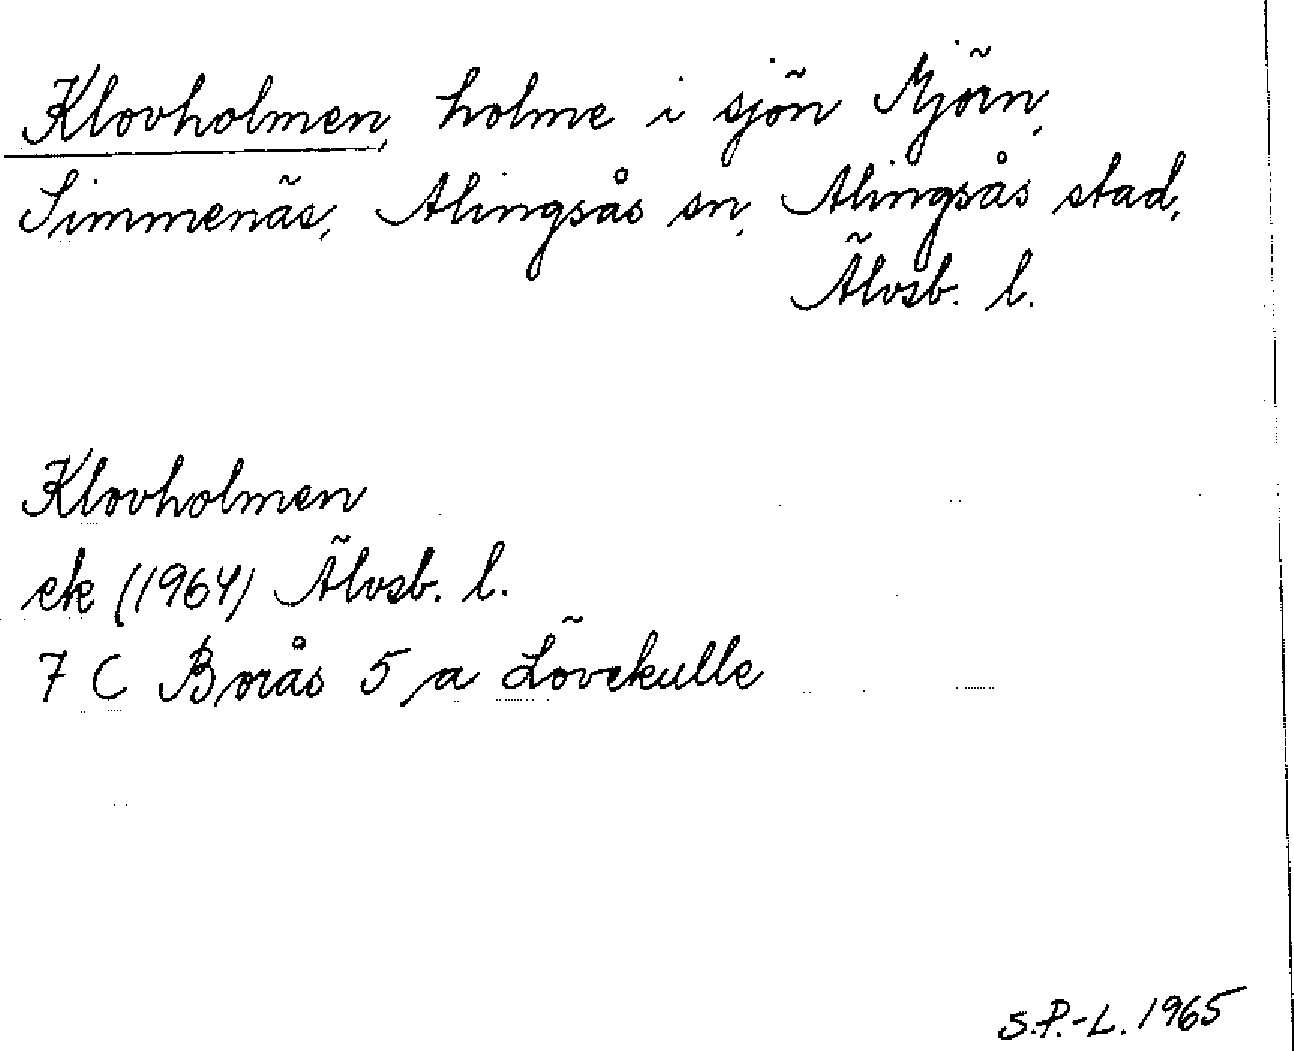 Klovholmen, holme i sjön Mjörn,
Simmenäs, Alingsås sn, Alingsås stad,
Älvsb. l.
Klovholmen
ek (1964) Älvsb. l.
7 C Borås 5 a Lövekulle
S.P.-L. 1965